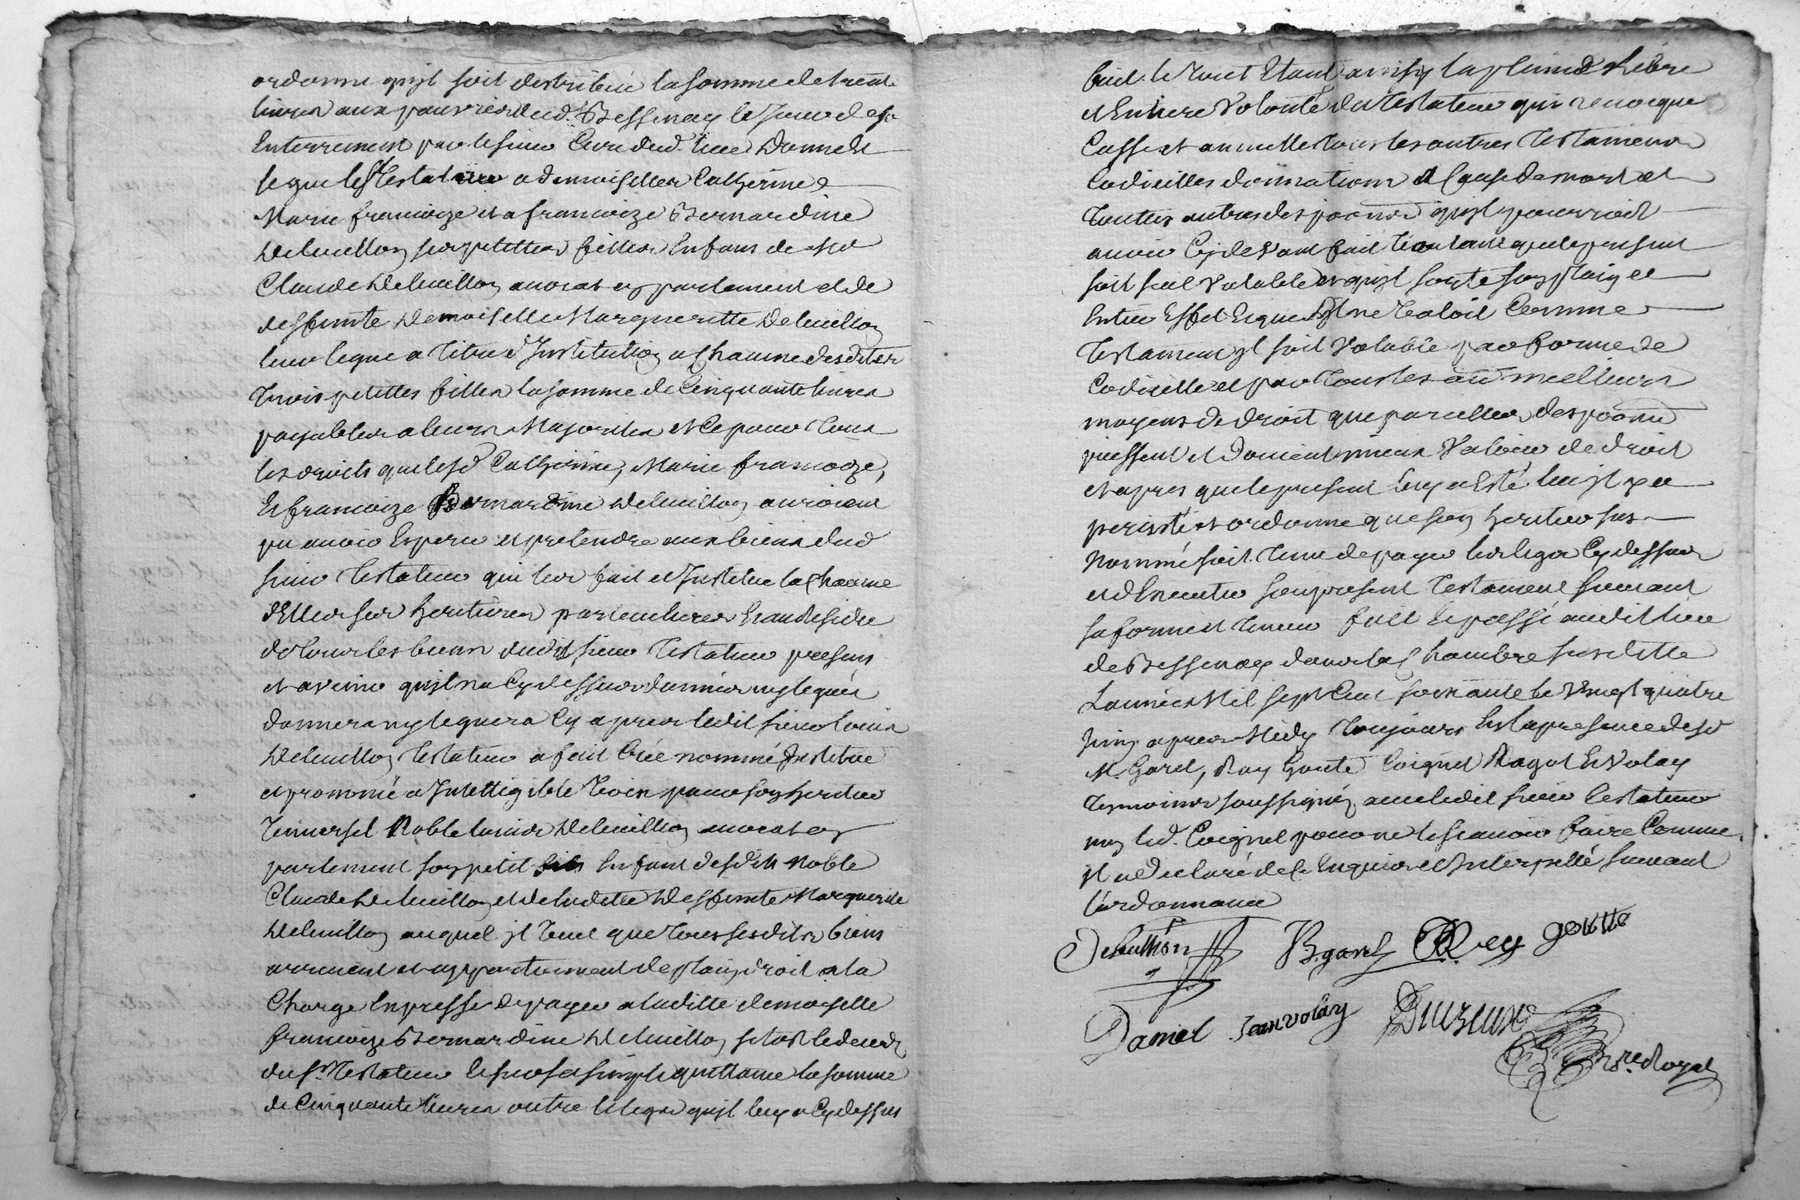 ordonne quil soit distribué la somme de trente
livres aux pauvres dud. Bessenay le jour de son
Enterrement par le sieur Curé dud. lieu Donne et
legue led. sr testateur a demoiselles Catherine
Marie francoize et a francoize Bernardine
Deleuillon ses petittes filles Enfans de Me
Claude Deleuillon avocat en parlement et de
deffunte Demoiselle Margueritte Deleuillon
leur legue a titre d'Institution a Chacune desdites
trois petittes filles la somme de Cinquante livres
payables a leurs Majorités et Ce pour tous
les droits que lesd. Catherine, Marie francoize,
Et francoize Bernardine Deleuillon auroient
pu avoir Esperer et pretendre aux biens dud
sieur testateur qui les fait et Institue la Chacune
d'Elles ses heritieres particulieres Et au residu
de tous les biens dudit sieur testateur presens
et avenir quil na Cy dessus donnés ny legués
donnera ny leguera Cy apres ledit sieur louis
Deleuillon testateur a fait Créé nommé Institue
et prononcé a Intelligible voix pour son heritier
Universel Noble louis Deleuillon avocat en
parlement son petit fils Enfant desdits Noble
Claude Deleuillon et de laditte Deffunte Marguerite
Deleuillon auquel il veut que tous sesdits biens
arrivent et appartiennent de plain droit a la
Charge Expresse de payer a laditte demoiselle
francoize Bernardine Deleuillon sitot le deces
du sr testateur Et sur sa simple quittance la somme
de Cinquante livres outre le legue quil luy a Cy dessus
fait. le tout Etant ainsy la pleine libre
et Entiere Volonté du testateur qui revocque
Casse et annulle tous les autres testamens
Codicilles donnations a Cause de mort et
touttes autres dispositions quil pourroit
avoir Cy devant fait voulant que le present
soit seul Valable et quil sorte son plain et
Entier Effet Et que sil ne Valoit Comme
testament il soit Valable par forme de
Codicille et par tous les autres meilleurs
moyens de droit que pareilles dispositions
puissent et doivent mieux Valoir de droit
et apres que le present luy a Esté leu il y a
persisté et ordonne que son heritier sus
nommé soit tenu de payer les legs Cy dessus
et d'Executer son present testament suivant
sa forme et teneur fait Et passé audit lieu
de Bessenay dans la Chambre susditte
L'année Mil sept Cent soixante le vingt quatre
juin apres Midy toujours En la presence desd
M. Garel, Ray Goutte Coignet Ragot Et Volay
temoins soussignés avec ledit sieur testateur
non led. Coignet pour ne le scavoir faire Comme
il a declaré de ce Enquis et Interpellé suivant
l'ordonnance
Deleuillon B garel Rey goutte
Daniel Jean volay
Nre. Royal